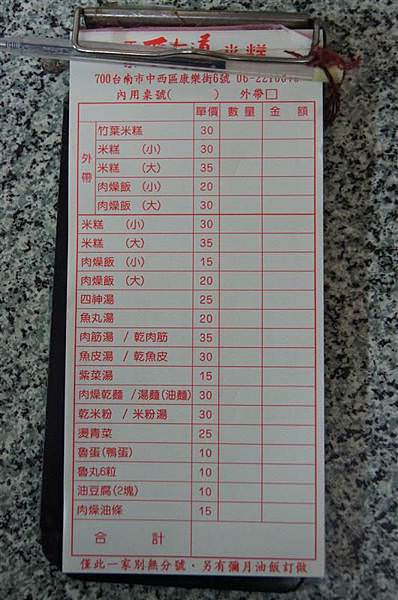 米糕
700台南市中西區康樂街6號 06-22
內用桌號( ) 外帶□
單價 數量 金額
外帶
竹葉米糕 30
米糕 (小) 30
米糕 (大) 35
肉燥飯 (小) 20
肉燥飯 (大) 30
米糕 (小) 30
米糕 (大) 35
肉燥飯 (小) 15
肉燥飯 (大) 20
四神湯 25
魚丸湯 20
肉筋湯 / 乾肉筋 35
魚皮湯 / 乾魚皮 30
紫菜湯 15
肉燥乾麵 / 湯麵(油麵) 30
乾米粉 / 米粉湯 30
燙青菜 25
魯蛋(鴨蛋) 10
魯丸6粒 10
油豆腐(2塊) 10
肉燥油條 15
合計
僅此一家別無分號，另有彌月油飯訂做